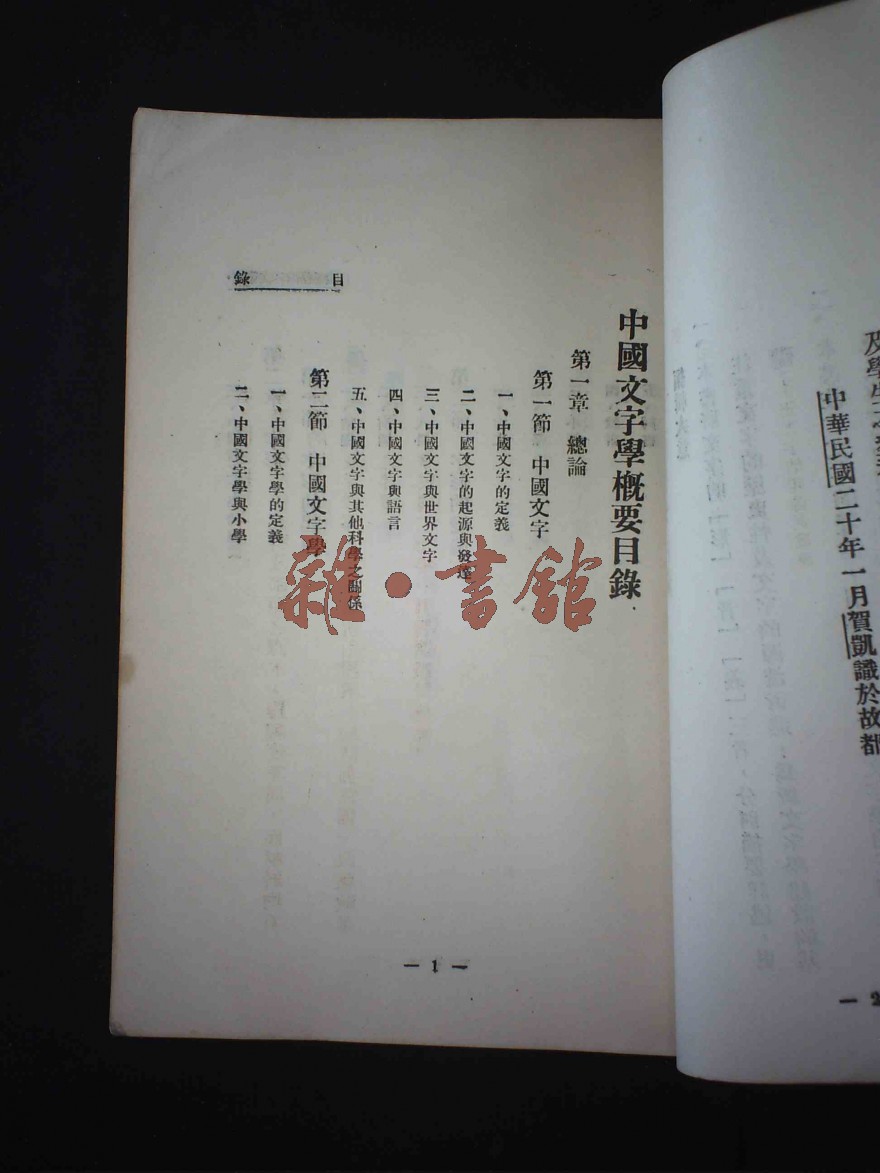 及學生
中華民國二十年一月賀凱識於故都
— 2
目錄
中國文字學概要目錄
第一章 總論
第一節 中國文字
一、中國文字的定義
二、中國文字的起源與發達
三、中國文字與世界文字
四、中國文字與語言
五、中國文字與其他科學之關係
第二節 中國文字學
一、中國文字學的定義
二、中國文字學與小學
— 1 —
雜·書館